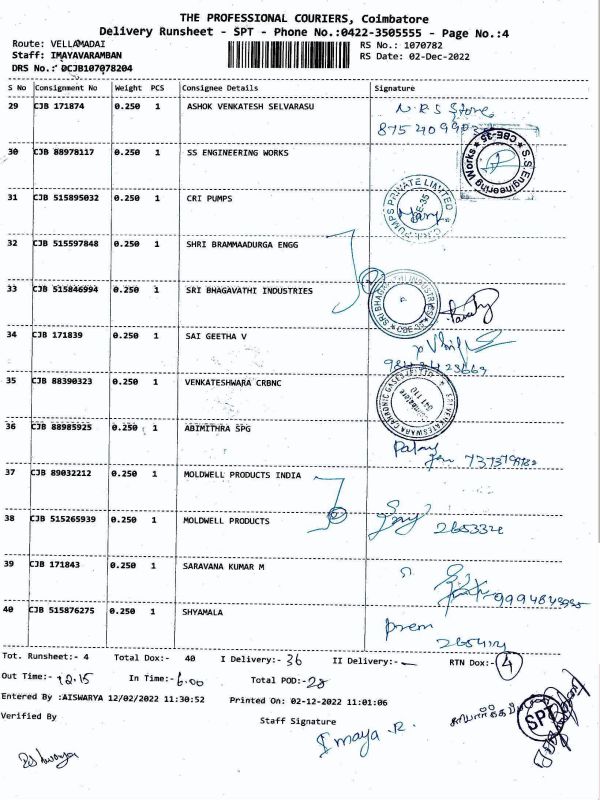 THE PROFESSIONAL COURIERS, Coimbatore
Delivery Runsheet - SPT - Phone No.:0422-3505555 - Page No.:4
Route: VELLAMADAI
RS No.: 1070782
Staff: IMAYAVARAMBAN
RS Date: 02-Dec-2022
DRS No.: DCJB107078204
S No Consignment No Weight PCS Consignee Details Signature
29 CJB 171874 0.250 1 ASHOK VENKATESH SELVARASU
N.R.S Store
30 CJB 88978117 0.250 1 SS ENGINEERING WORKS
S.S. Engineering Works CBE-35
31 CJB 515895032 0.250 1 CRI PUMPS
C.R.I. PUMPS PRIVATE LIMITED
32 CJB 515597848 0.250 1 SHRI BRAMMAADURGA ENGG
33 CJB 515846994 0.250 1 SRI BHAGAVATHI INDUSTRIES
SRI BHAGAVATHI INDUSTRIES CBE-35
34 CJB 171839 0.250 1 SAI GEETHA V
35 CJB 88390323 0.250 1 VENKATESHWARA CRBNC
SRI VENKATESWARA CARBONIC GASES (P) LTD Coimbatore 641 110
36 CJB 88985925 0.250 1 ABIMITHRA SPG
37 CJB 89032212 0.250 1 MOLDWELL PRODUCTS INDIA
38 CJB 515265939 0.250 1 MOLDWELL PRODUCTS
265332
39 CJB 171843 0.250 1 SARAVANA KUMAR M
40 CJB 515876275 0.250 1 SHYAMALA
prem
Tot. Runsheet:- 4 Total Dox:- 40 I Delivery:- 36 II Delivery:- RTN Dox:- 4
Out Time:- 12.15 In Time:- 6.00 Total POD:- 28
Entered By :AISWARYA 12/02/2022 11:30:52 Printed On: 02-12-2022 11:01:06
Verified By Staff Signature
SPT
Imaya .R.
Aiswarya